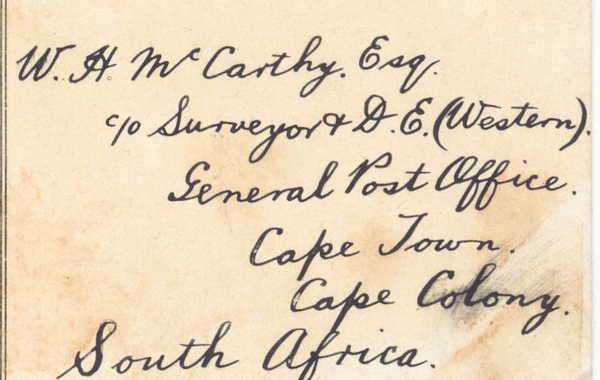 W. H. McCarthy. Esq.
c/o Surveyor & D. E. (Western).
General Post Office.
Cape Town.
Cape Colony.
South Africa.